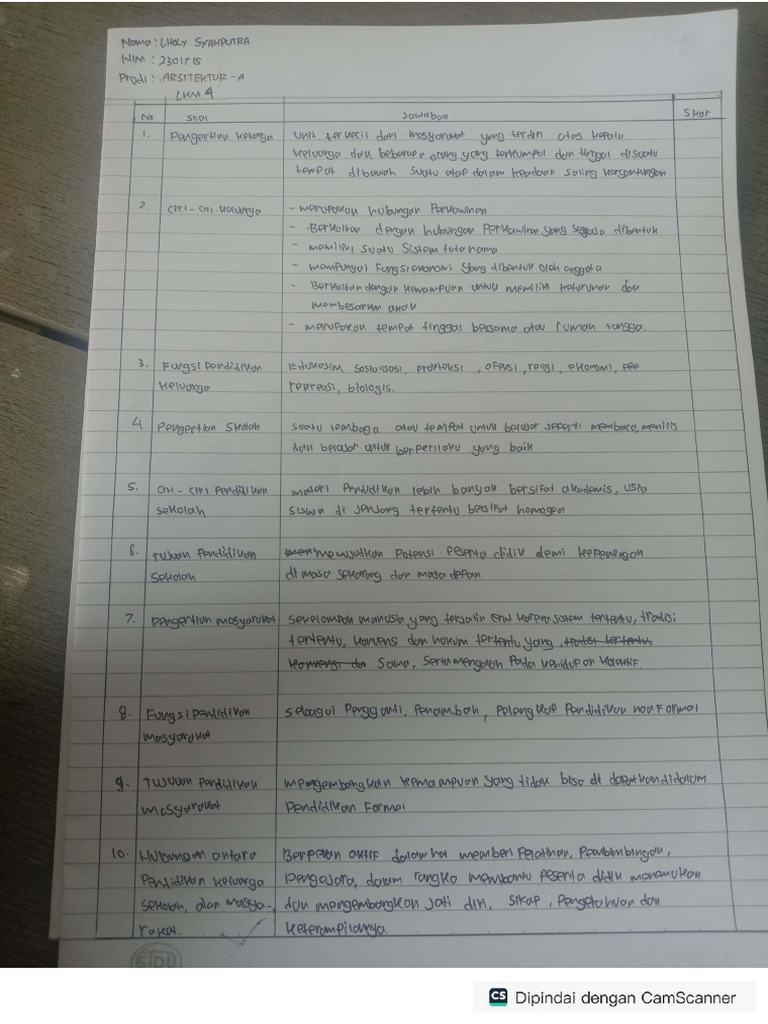 Nama : LHOLY SYAHPUTRA
NIM : 2301815
Prodi : ARSITEKTUR - A
LKM 4
No Soal Jawaban Skor
1. Pengertian keluarga Unit terkecil dari masyarakat yang terdiri atas kepala
keluarga dan beberapa orang yang terkumpul dan tinggal disuatu
tempat dibawah suatu atap dalam keadaan saling kergantungan
2. Ciri - ciri keluarga - merupakan hubungan Perkawinan
- Berkaitan dengan hubungan Perkawinan yang sengaja dibentuk
- memiliki suatu sistem tata nama
- mempunyai fungsi ekonomi yang dibentuk oleh anggota
- Berkaitan dengan kemampuan untuk memiliki keturunan dan
membesarkan anak
- merupakan tempat tinggal bersama atau rumah tangga.
3. Fungsi Pendidikan Sosialisasi, proteksi, afeksi, religi, ekonomi,
keluarga rekreasi, biologis.
4. Pengertian Skolah suatu lembaga atau tempat untuk belajar seperti membaca, menulis
dan belajar untuk berperilaku yang baik
5. Ciri - ciri Pendidikan materi Pendidikan lebih banyak bersifat akademis, usia
sekolah siswa di jenjang tertentu bersifat homogen
6. Tujuan Pendidikan mewujudkan Potensi Peserta didik demi kepentingan
Sekolah di masa sekarang dan masa depan
7. Pengertian masyarakat sekelompok manusia yang terjalin erat karena sistem tertentu, tradisi
tertentu, konvensi dan hukum tertentu yang, tradisi tertentu,
konvensi dan sama, serta mengarah Pada kehidupan kolektif.
8. Fungsi Pendidikan sebagai Pengganti, Penambah, Pelengkap Pendidikan non Formal
masyarakat
9. Tujuan Pendidikan mengembangkan kemampuan yang tidak bisa di dapatkan didalam
masyarakat Pendidikan Formal
10. Hubungan antara Berperan aktif dalam hal memberi Pelatihan, Pembimbingan,
Pendidikan keluarga Pengajara, dalam rangka membantu peserta didik menemukan
sekolah, dan masya- dan mengembangkan jati diri, sikap, Pengetahuan dan
rakat. keterampilannya.
SIDU
CS Dipindai dengan CamScanner